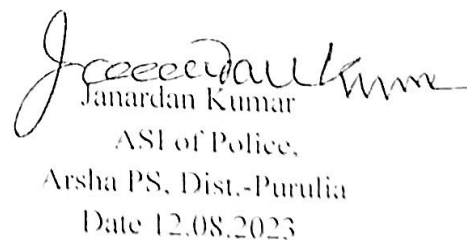 Janardan Kumar
Janardan Kumar
ASI of Police,
Arsha PS, Dist.-Purulia
Date 12.08.2023